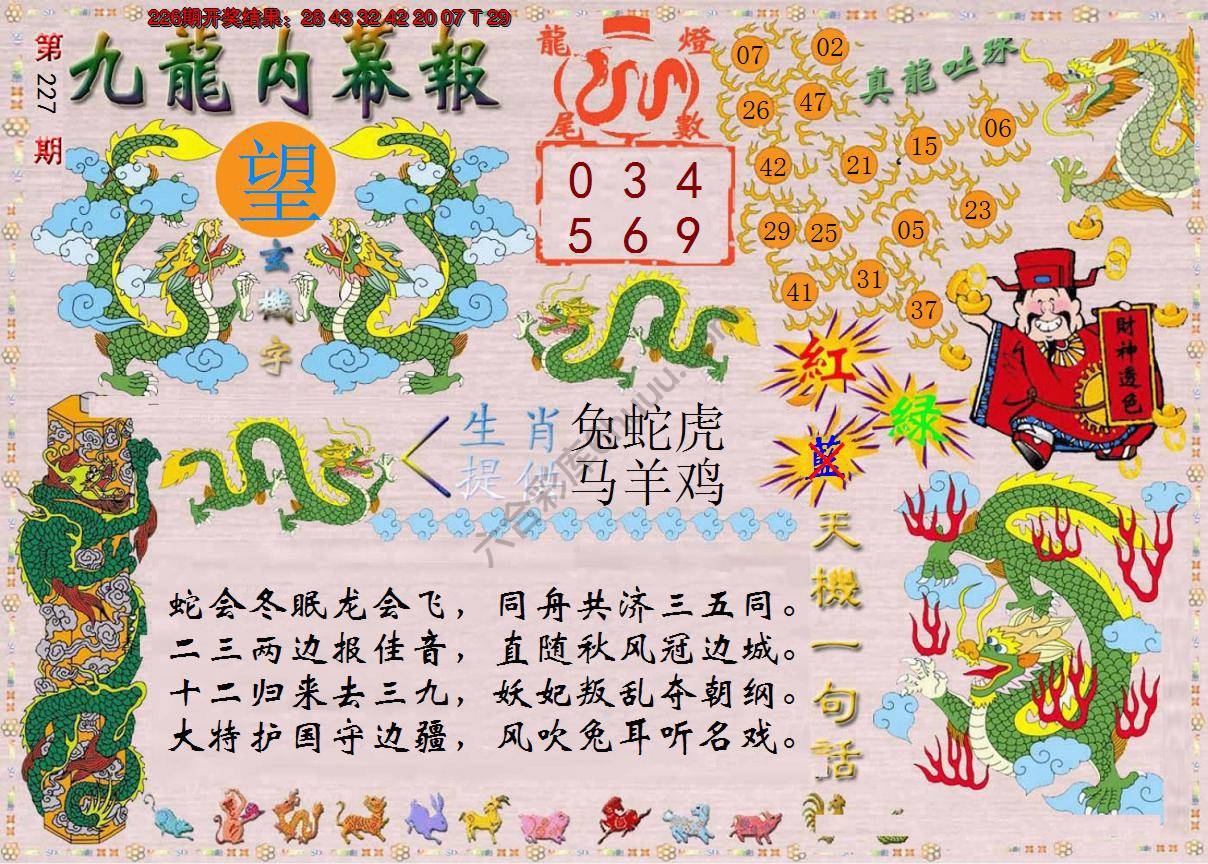 226期开奖结果：28 43 32 42 20 07 T 29
第227期
九龍内幕報
望
玄機字
龍燈
尾數
0 3 4
5 6 9
真龍吐珠
07 02
26 47
42 21 15 06
29 25 05 23
41 31 37
財神透色
紅
綠
藍
生肖提供
兔蛇虎
马羊鸡
六合彩库
蛇会冬眠龙会飞，同舟共济三五同。
二三两边报佳音，直随秋风冠边城。
十二归来去三九，妖妃叛乱夺朝纲。
大特护国守边疆，风吹兔耳听名戏。
天機一句話